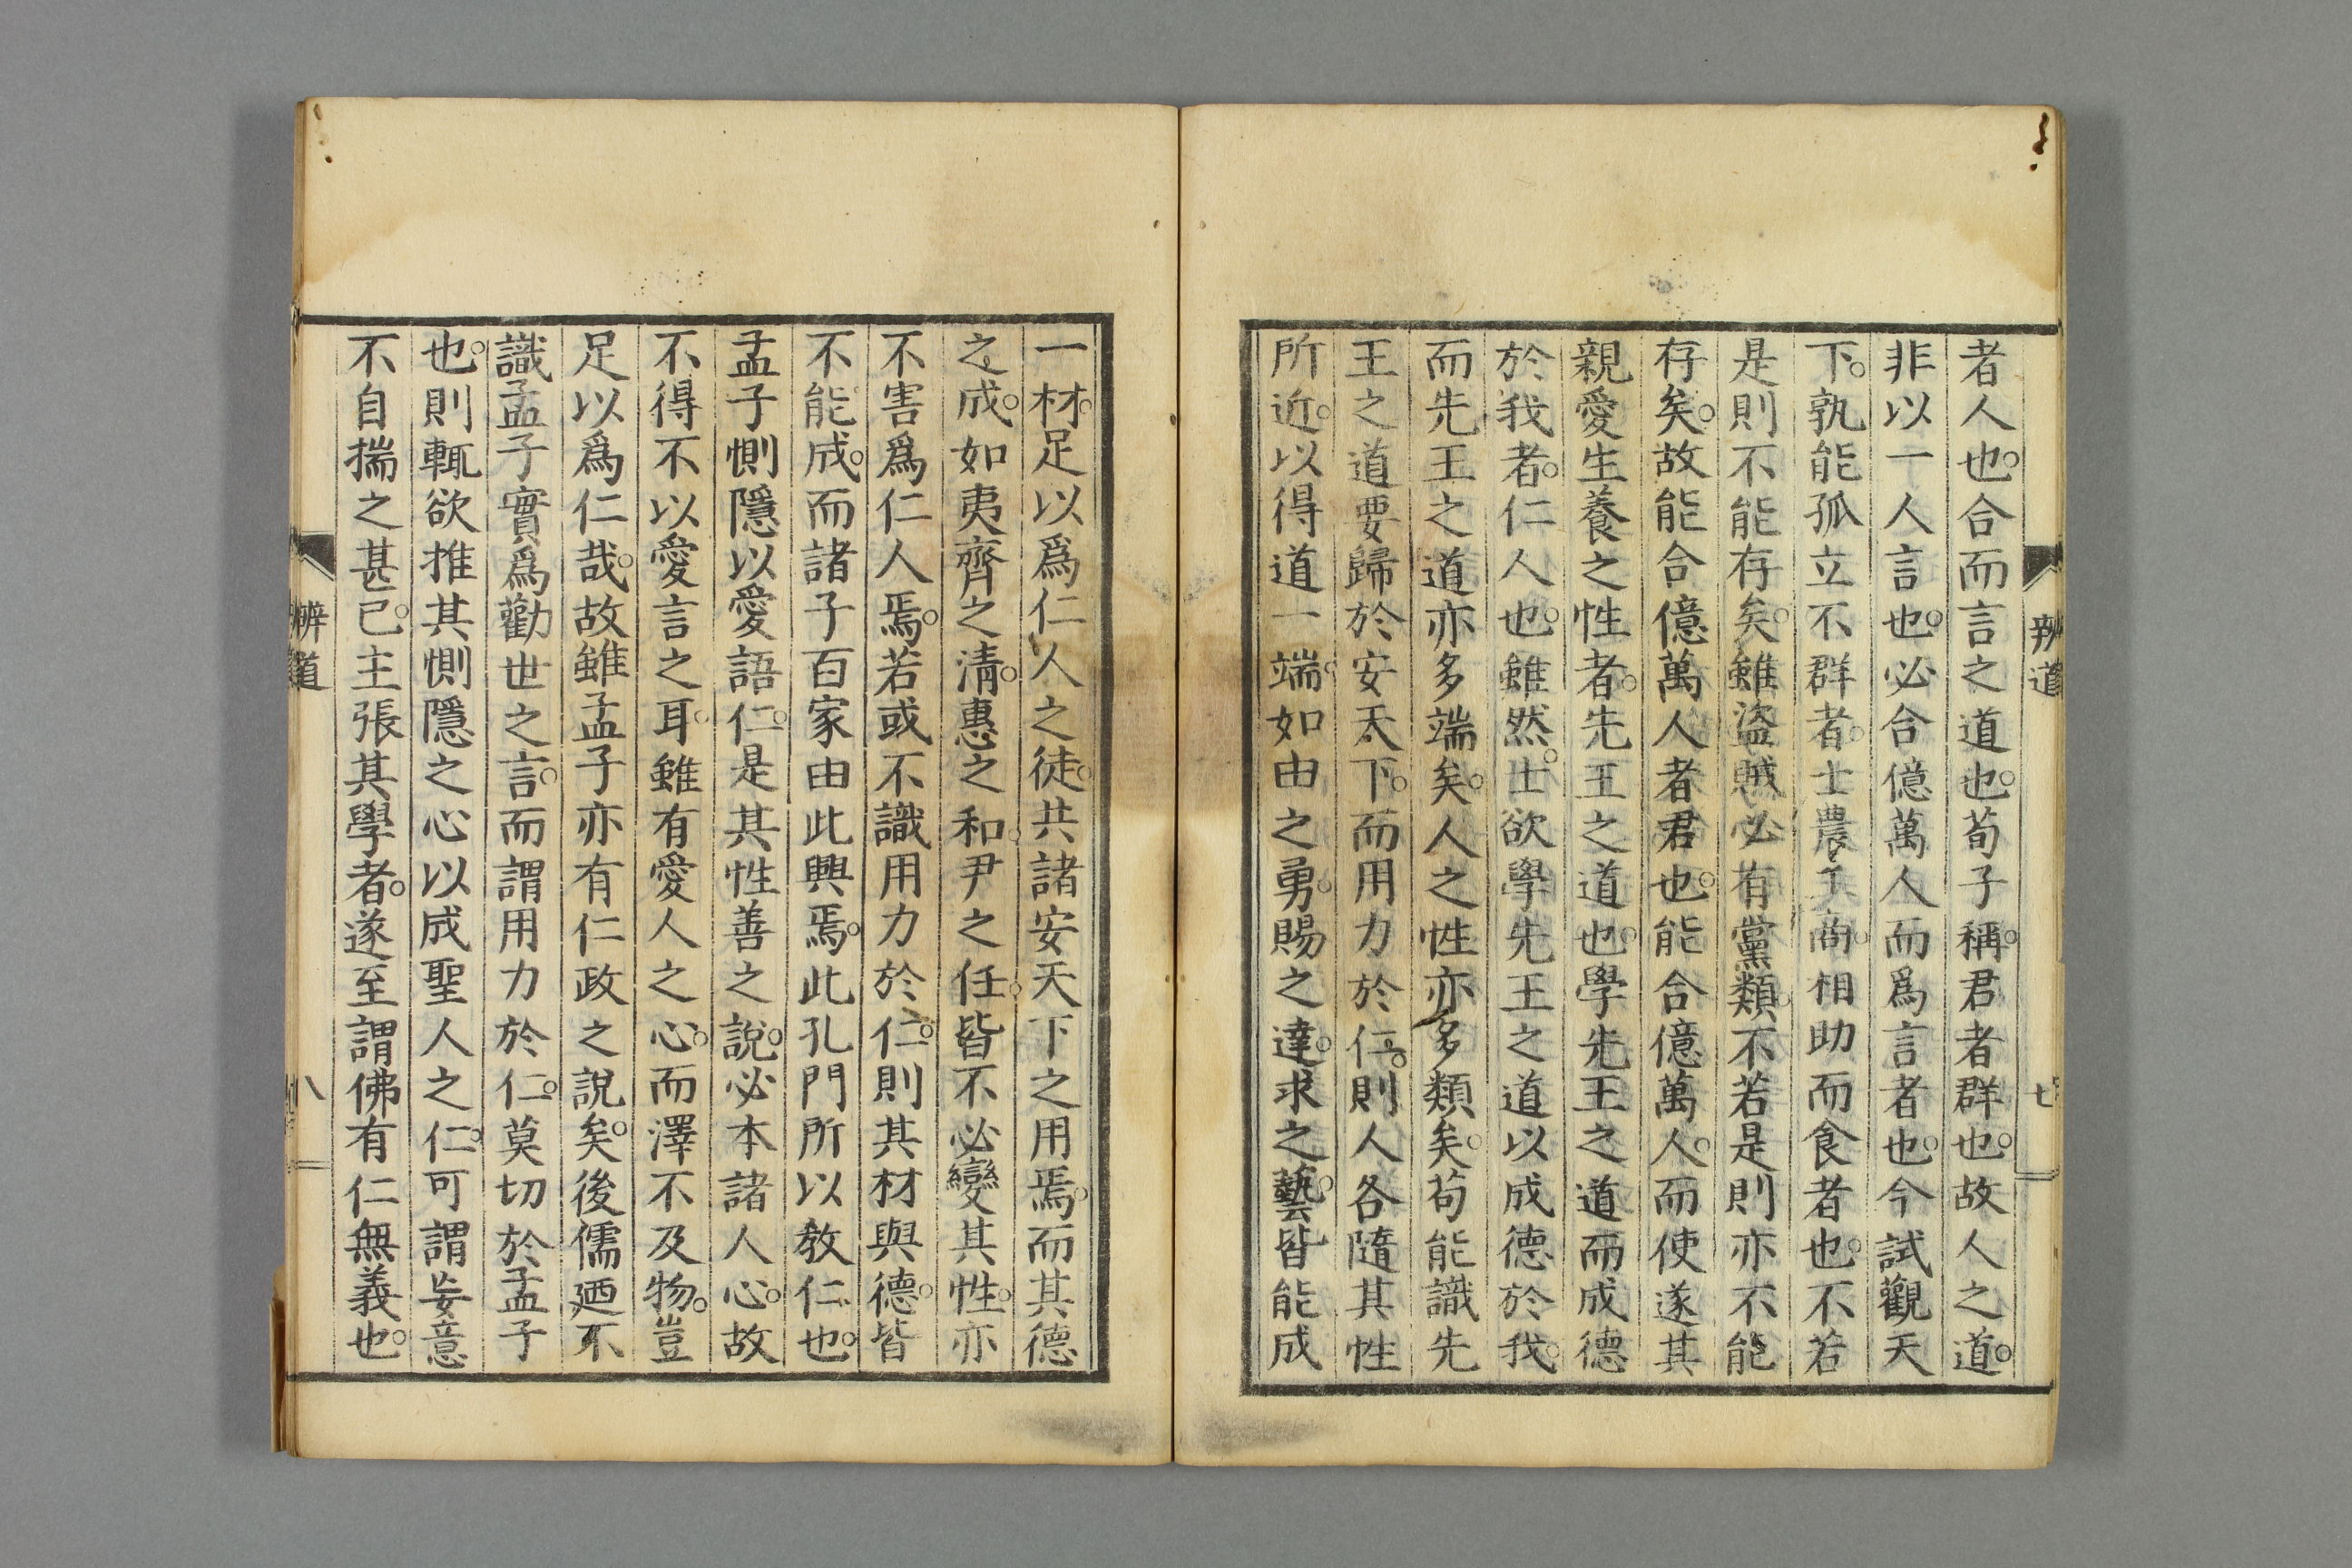 辨道
七
者人也。合而言之道也。荀子稱。君者群也。故人之道。
非以一人言也。必合億萬人而爲言者也。今試觀天
下。孰能孤立不群者。士農工商。相助而食者也。不若
是則不能存矣。雖盜賊必有黨類。不若是則亦不能
存矣。故能合億萬人者君也。能合億萬人。而使遂其
親愛生養之性者。先王之道也。學先王之道而成德
於我者。仁人也。雖然。士欲學先王之道以成德於我。
而先王之道亦多端矣。人之性亦多類矣。苟能識先
王之道要歸於安天下。而用力於仁。則人各隨其性
所近。以得道一端。如由之勇。賜之達。求之藝。皆能成
一材。足以爲仁人之徒。共諸安天下之用焉。而其德
之成。如夷齊之淸。惠之和。尹之任。皆不必變其性。亦
不害爲仁人焉。若或不識用力於仁。則其材與德。皆
不能成。而諸子百家由此興焉。此孔門所以教仁也。
孟子惻隱以愛語仁。是其性善之說。必本諸人心。故
不得不以愛言之耳。雖有愛人之心。而澤不及物。豈
足以爲仁哉。故雖孟子亦有仁政之說矣。後儒廼不
識孟子實爲勸世之言。而謂用力於仁。莫切於孟子
也。則輒欲推其惻隱之心以成聖人之仁。可謂妄意
不自揣之甚已。主張其學者。遂至謂佛有仁無義也。
辨道
八